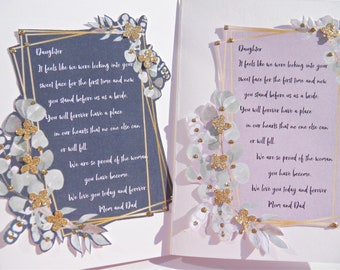 Daughter
It feels like we were looking into your
sweet face for the first time and now
you stand before us as a bride.
You will forever have a place
in our hearts that no one else can
or will fill.
We are so proud of the woman
you have become.
We love you today and forever
Mom and Dad
Daughter
It feels like we were looking into your
sweet face for the first time and now
you stand before us as a bride.
You will forever have a place
in our hearts that no one else can
or will fill.
We are so proud of the woman
you have become.
We love you today and forever
Mom and Dad